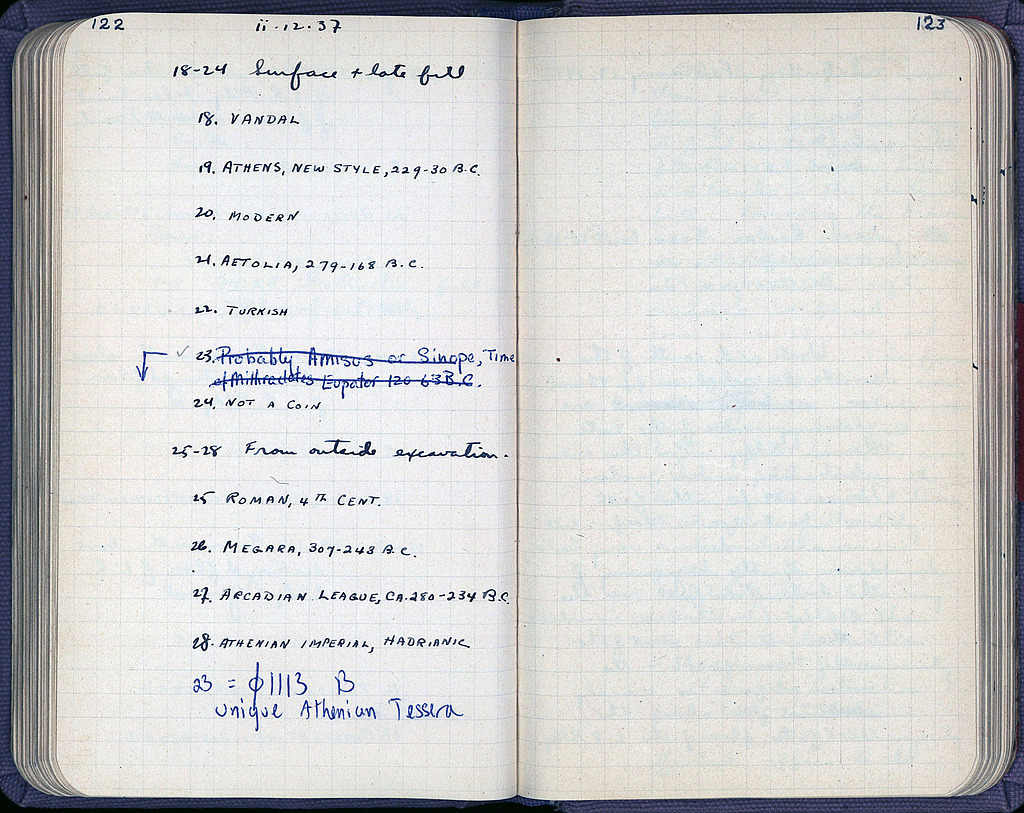 122
ii·12·37
18-24 Surface + late fill
18. VANDAL
19. ATHENS, NEW STYLE, 229-30 B.C.
20. MODERN
21. AETOLIA, 279-168 B.C.
22. TURKISH
✓ 23. Probably Amisos or Sinope, Time
of Mithradates Eupator 120-63 B.C.
24. NOT A COIN
25-28 From outside excavation.
25 ROMAN, 4TH CENT.
26. MEGARA, 307-243 B.C.
27. ARCADIAN LEAGUE, CA. 280-234 B.C.
28. ATHENIAN IMPERIAL, HADRIANIC
23 = φ1113 B
unique Athenian Tessera
123